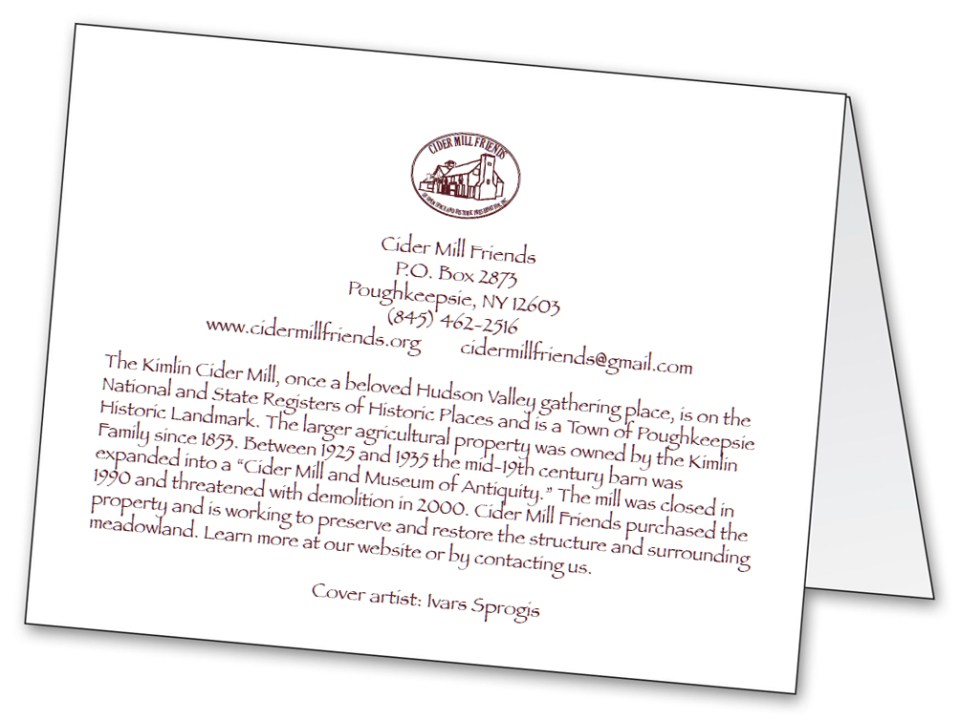 CIDER MILL FRIENDS
Cider Mill Friends
P.O. Box 2873
Poughkeepsie, NY 12603
(845) 462-2516
www.cidermillfriends.org cidermillfriends@gmail.com
The Kimlin Cider Mill, once a beloved Hudson Valley gathering place, is on the
National and State Registers of Historic Places and is a Town of Poughkeepsie
Historic Landmark. The larger agricultural property was owned by the Kimlin
Family since 1853. Between 1925 and 1935 the mid-19th century barn was
expanded into a “Cider Mill and Museum of Antiquity.” The mill was closed in
1990 and threatened with demolition in 2000. Cider Mill Friends purchased the
property and is working to preserve and restore the structure and surrounding
meadowland. Learn more at our website or by contacting us.
Cover artist: Ivars Sprogis